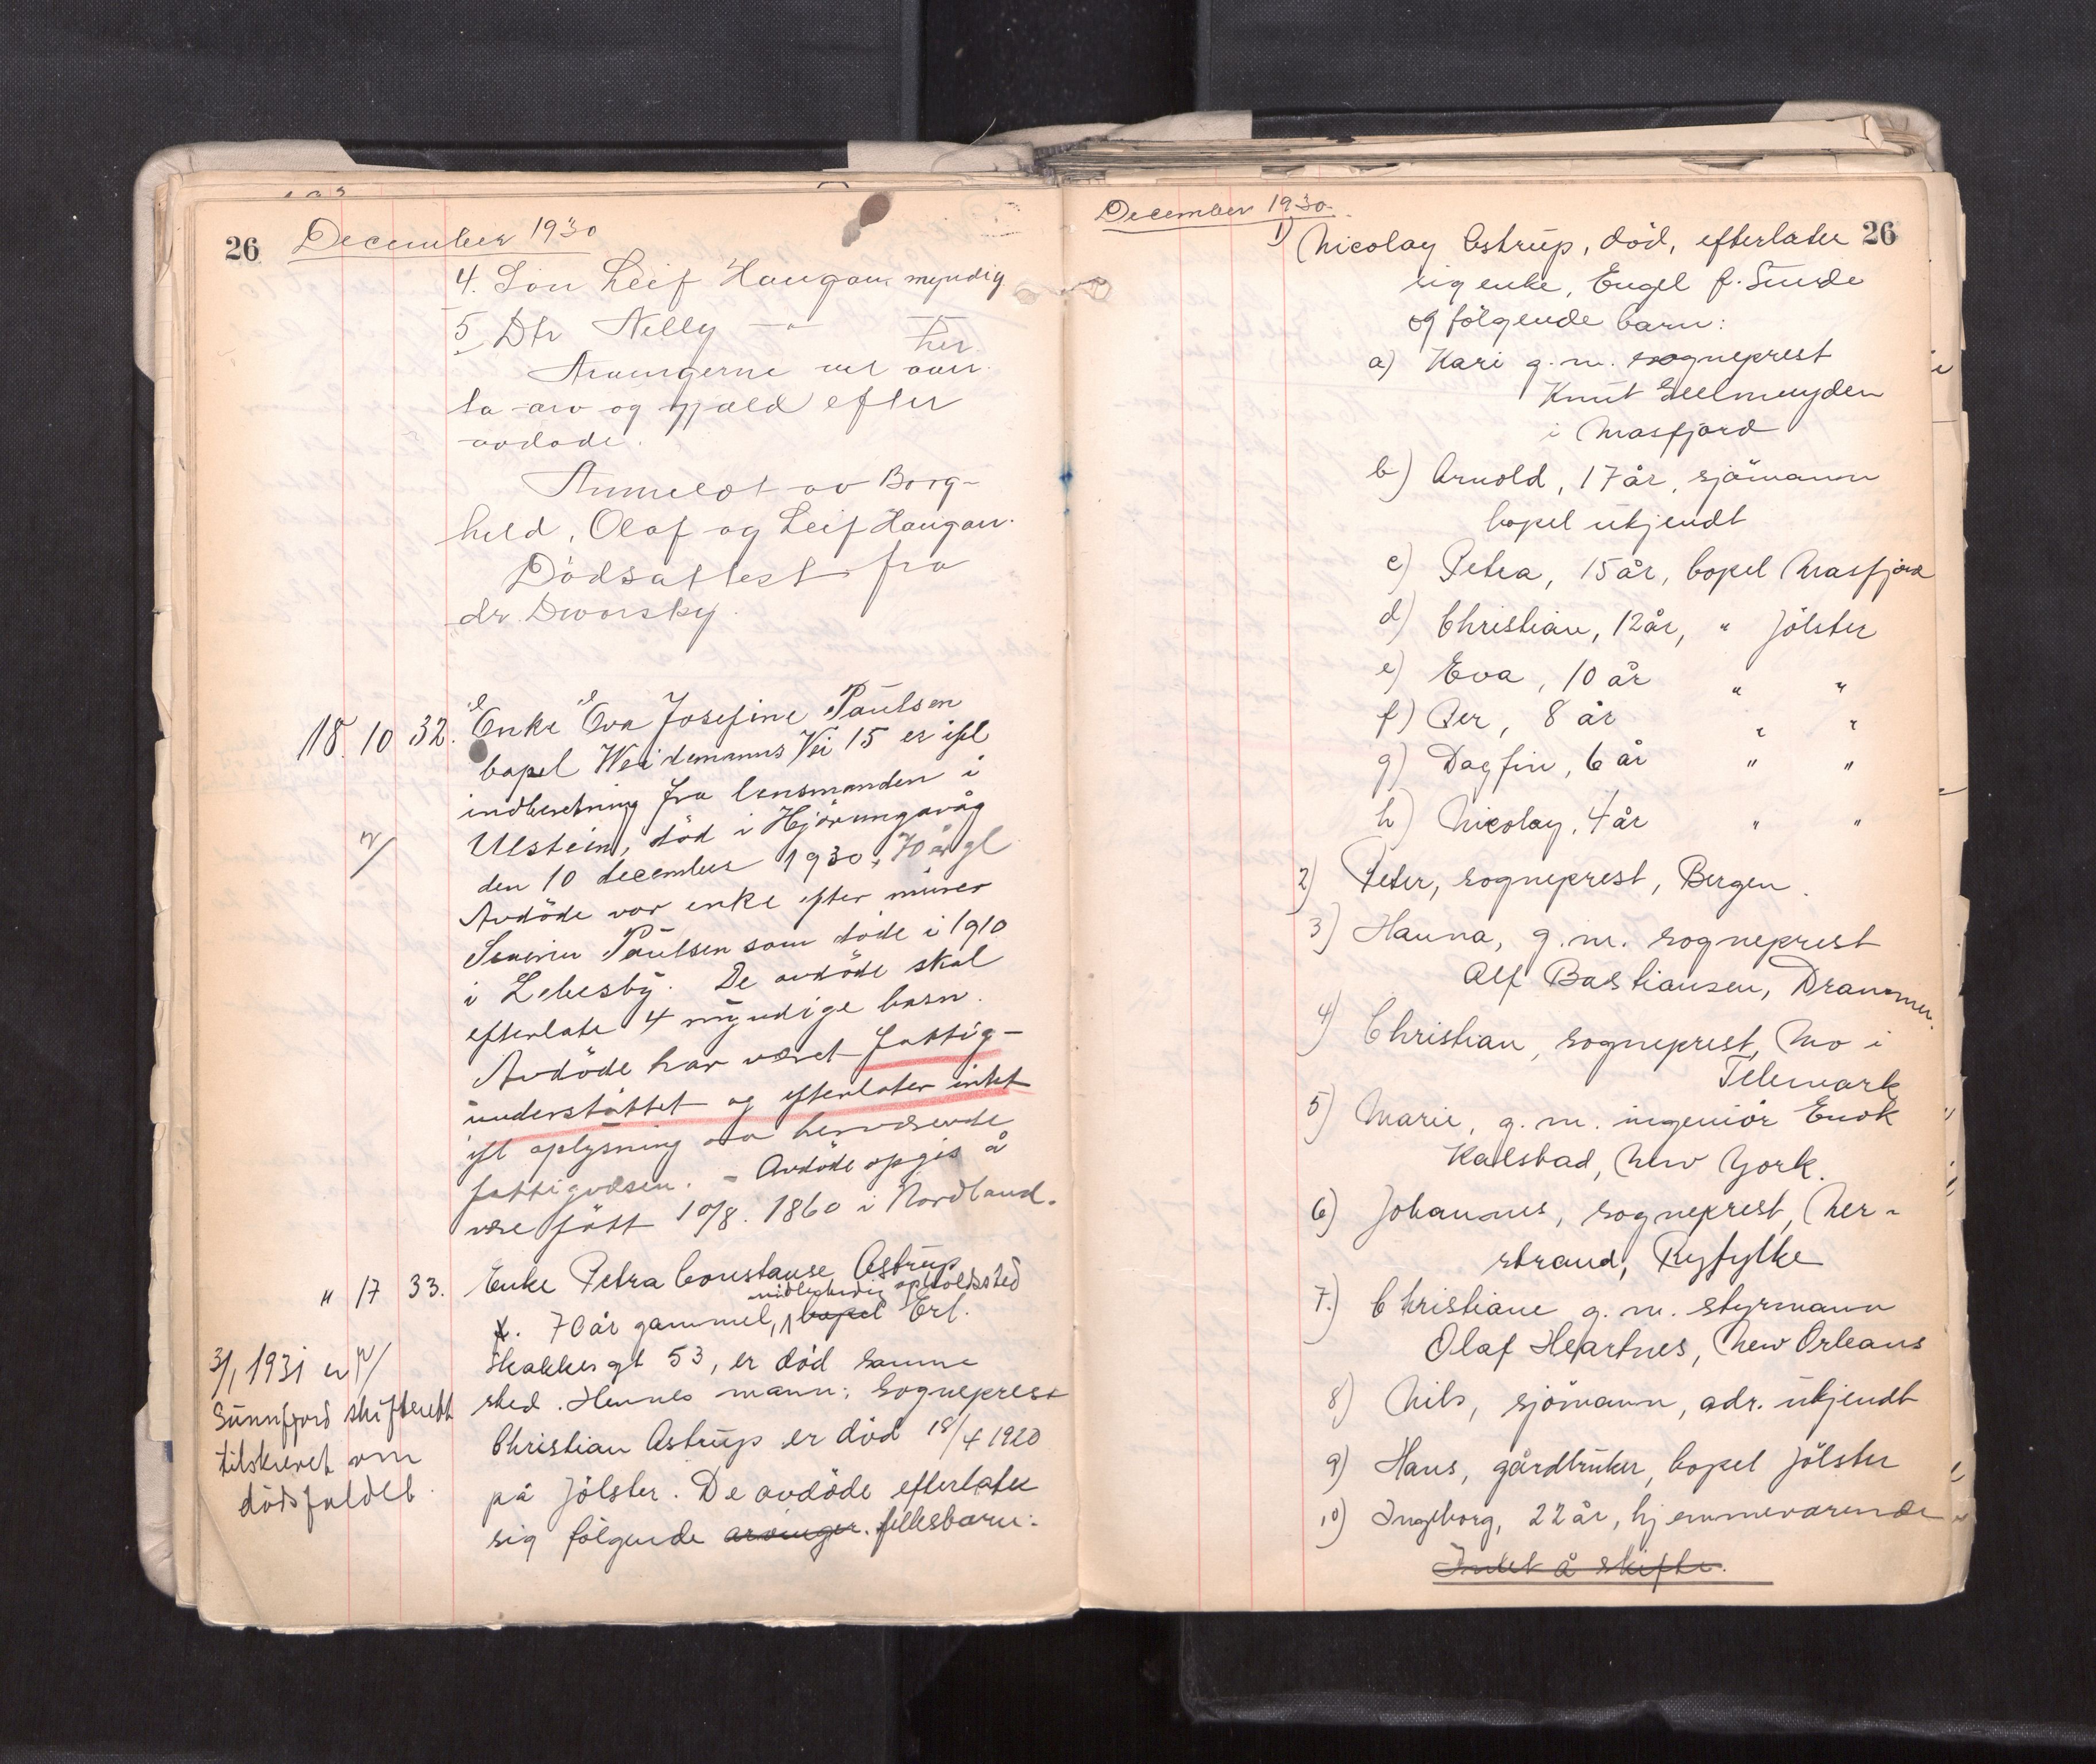 26 December 1930
4. Sön Leif Haugan myndig
5. Dtr Nelly —"— her
Arvingerne vil over-
ta arv og gjæld efter
avdøde.
Anmeldt av Borg-
hild, Olaf og Leif Haugan.
Dödsattest fra
dr. Dworsky.
18. 10 32. Enke Eva Josefine Paulsen
bopel Weidemanns Vei 15 er ifl
indberetning fra lensmanden i
Ulstein, död i Hjörungavåg
den 10 december 1930, 70 år gl
Avdöde var enke efter murer
Paulsen som döde i 1910
i Lebesby. De avdöde skal
efterlate 4 myndige barn.
Avdöde har været fattig-
understöttet og efterlater intet
ifl oplysning av herværende
fattigvæsen. - Avdöde opgis å
være fött 10/8. 1860 i Nordland.
" 17 33. Enke Petra Constanse Astrup
midlertidig opholdssted
f. 70 år gammel, bopel Erl.
Skakkes gt 53, er död samme
sted. Hennes mann: Sogneprest
Christian Astrup er död 18/4 1920
på Jölster. De avdöde efterlater
sig fölgende arvinger. fellesbarn:
3/1 1931 er
Sunnfjord skifterett
tilskrevet om
dödsfaldet
December 1930.
26
1) Nicolay Astrup, död, efterlater
sig enke, Engel f. Sunde
og fölgende barn:
a) Kari g.m. sogneprest
Knut Geelmuyden
i Masfjord
b) Arnold, 17 år, sjömann
bopel ukjendt
c) Petra, 15 år, bopel Masfjord
d) Christian, 12 år, " Jölster
e) Eva, 10 år " "
f) Per, 8 år " "
g) Dagfin, 6 år " "
h) Nicolay, 4 år " "
2) Peter, sogneprest, Bergen.
3) Hanna, g.m. sogneprest
Alf Bastiansen, Drammen.
4) Christian, sogneprest, Mo i
Telemark
5) Marie, g.m. ingeniör Enok
Kalsbad, New York.
6) Johannes, sogneprest, Ner-
strand, Ryfylke
7.) Christiane g.m. styrmann
Olaf Heartnes, New Orleans
8) Nils, sjömann, adr. ukjendt
9) Hans, gårdbruker, bopel Jölster
10) Ingeborg, 22 år, hjemmeværende
Intet å skifte.